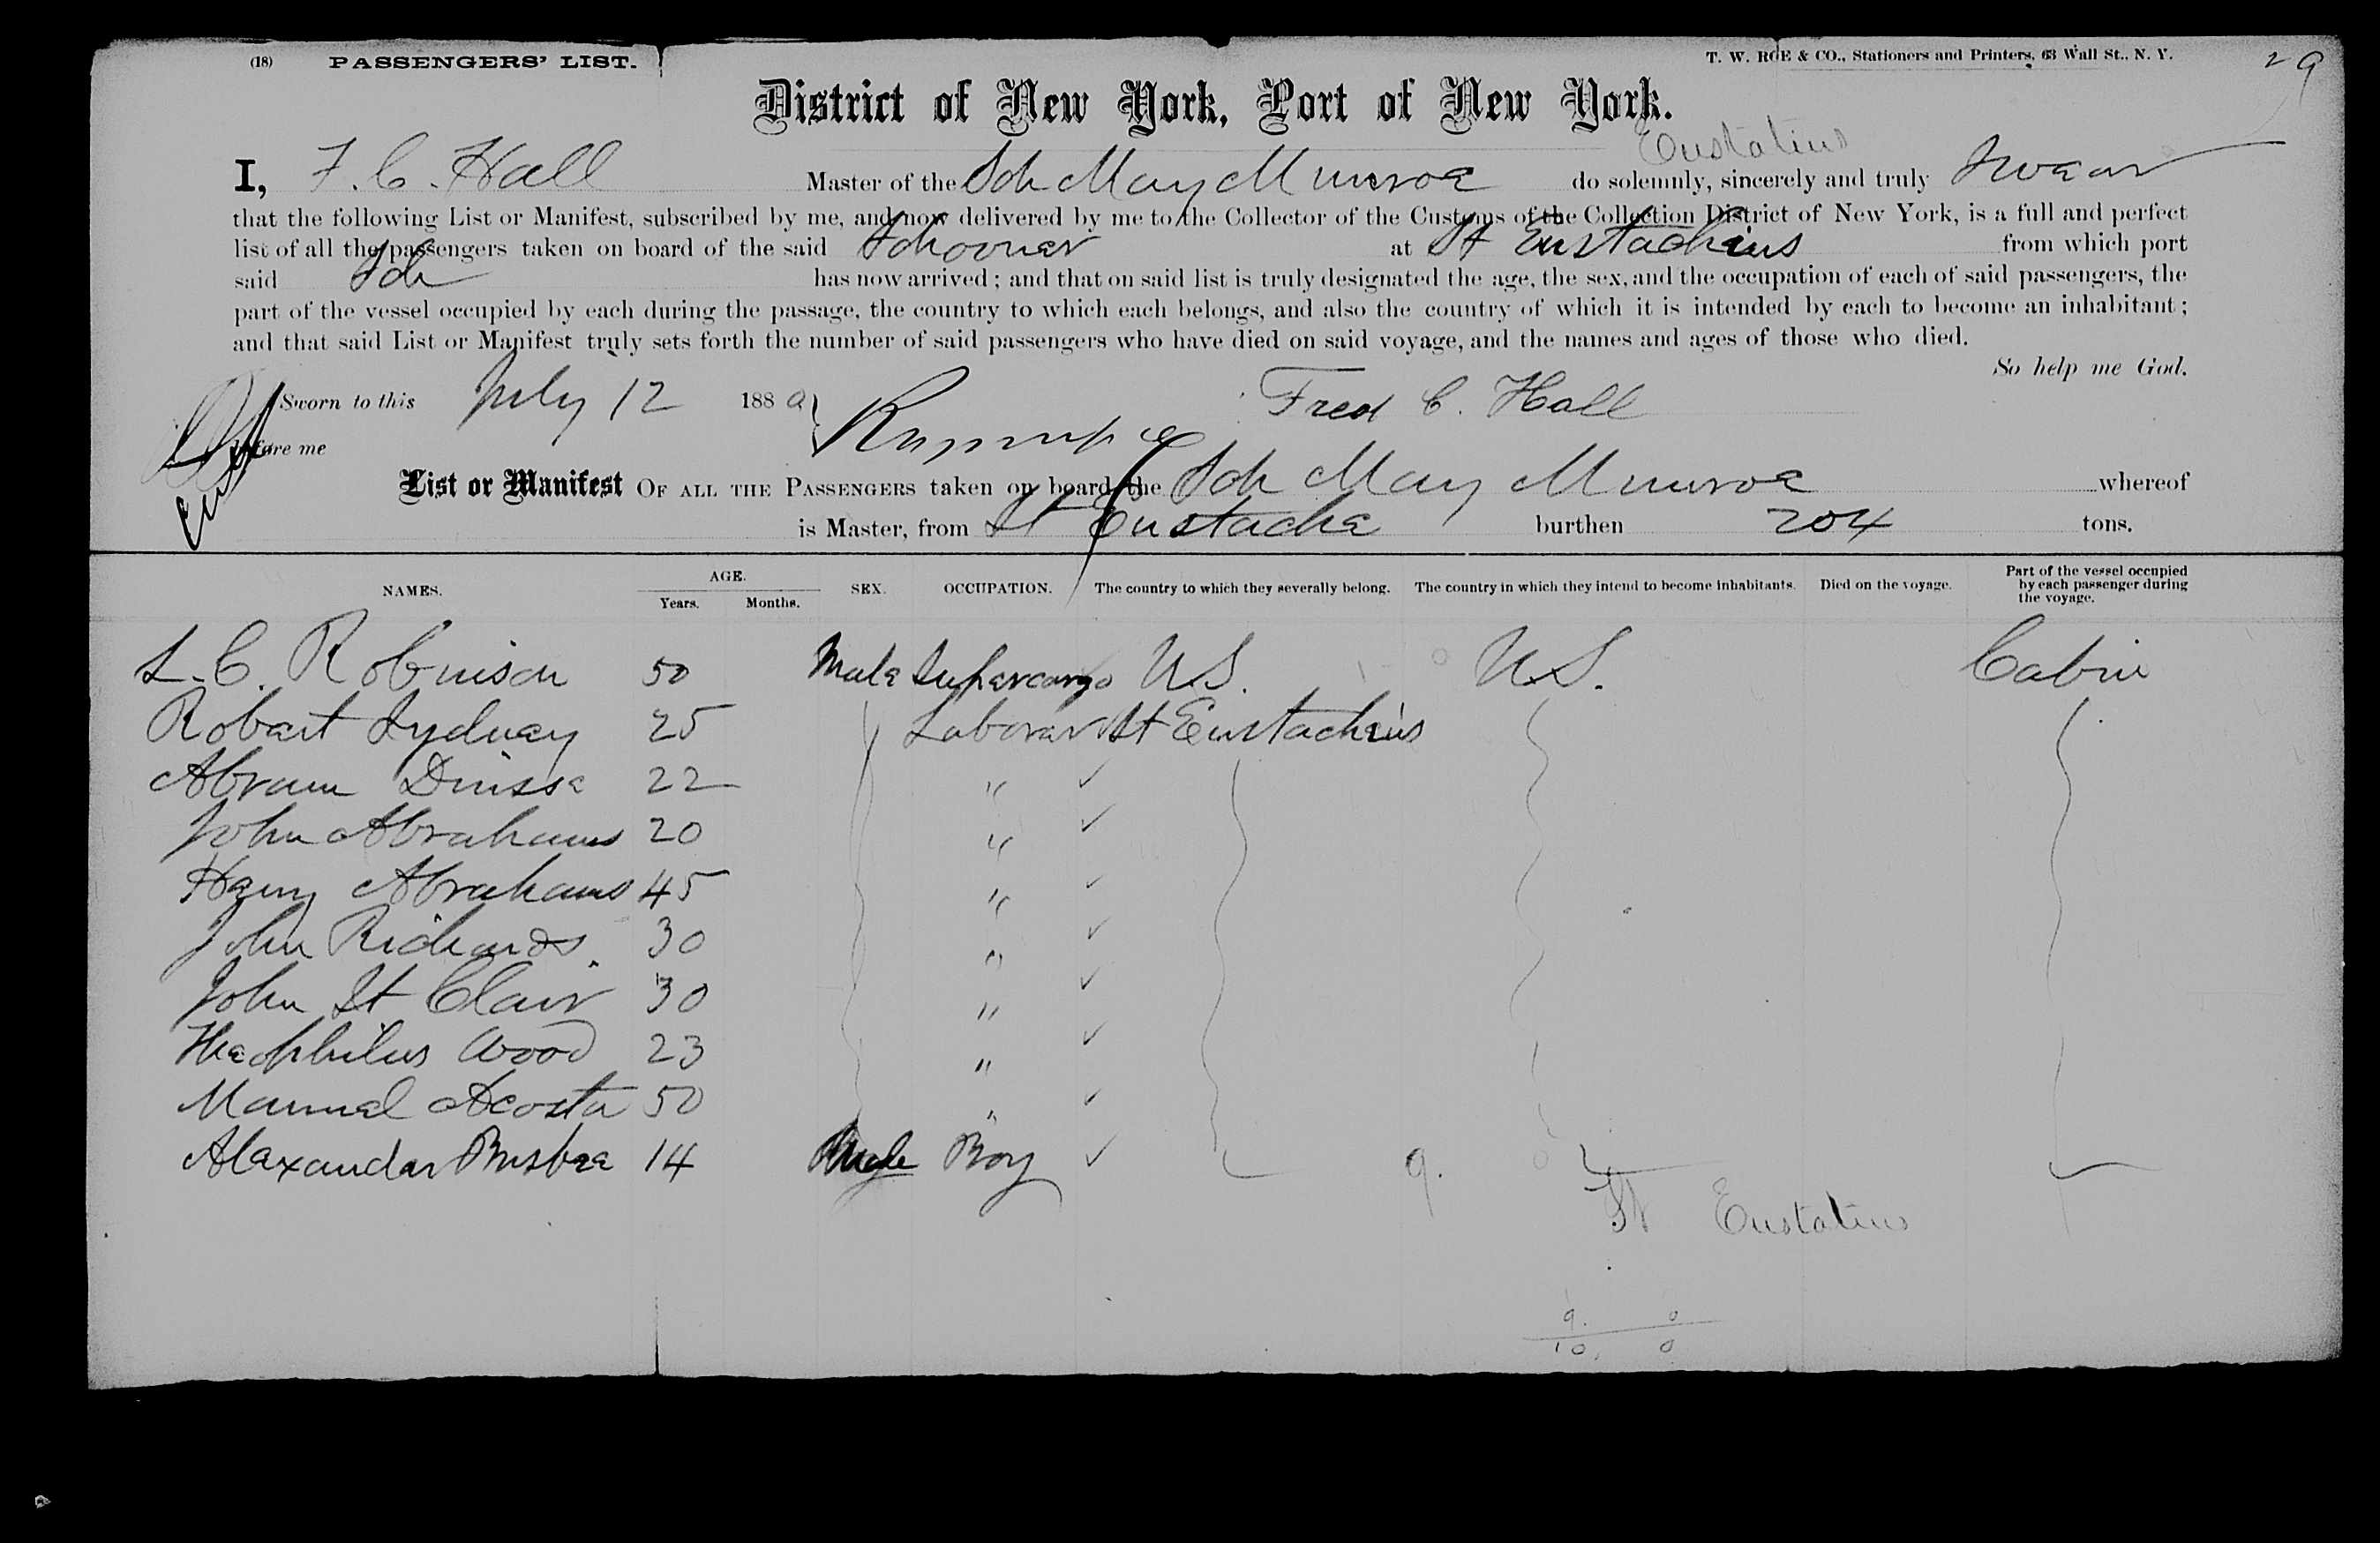 (18) PASSENGERS' LIST.
T. W. ROE & CO., Stationers and Printers, 63 Wall St., N. Y.
29
District of New York, Port of New York.
Eustatius
I, F. C. Hall Master of the Sch May Munroe do solemnly, sincerely and truly Swear
that the following List or Manifest, subscribed by me, and now delivered by me to the Collector of the Customs of the Collection District of New York, is a full and perfect
list of all the passengers taken on board of the said Schooner at St Eustachius from which port
said Sch has now arrived; and that on said list is truly designated the age, the sex, and the occupation of each of said passengers, the
part of the vessel occupied by each during the passage, the country to which each belongs, and also the country of which it is intended by each to become an inhabitant;
and that said List or Manifest truly sets forth the number of said passengers who have died on said voyage, and the names and ages of those who died.
So help me God.
Sworn to this July 12 1889 Fred C. Hall
before me
List or Manifest OF ALL THE PASSENGERS taken on board the Sch May Munroe whereof
is Master, from St Eustache burthen 204 tons.
NAMES. AGE. Years. Months. SEX. OCCUPATION. The country to which they severally belong. The country in which they intend to become inhabitants. Died on the voyage. Part of the vessel occupied by each passenger during the voyage.
L. C. Robinson 50 Male Supercargo U.S. U.S. Cabin
Robert Sydney 25 Laborer St Eustachius
Abram 22 "
John Abrahams 20 "
Henry Abrahams 45 "
John Richards. 30 "
John St Clair 30 "
Theophilus Wood 23 "
Manuel Acosta 50 "
Alexander Busbee 14 Male Boy 9.
St Eustatius
9. 0
10. 0